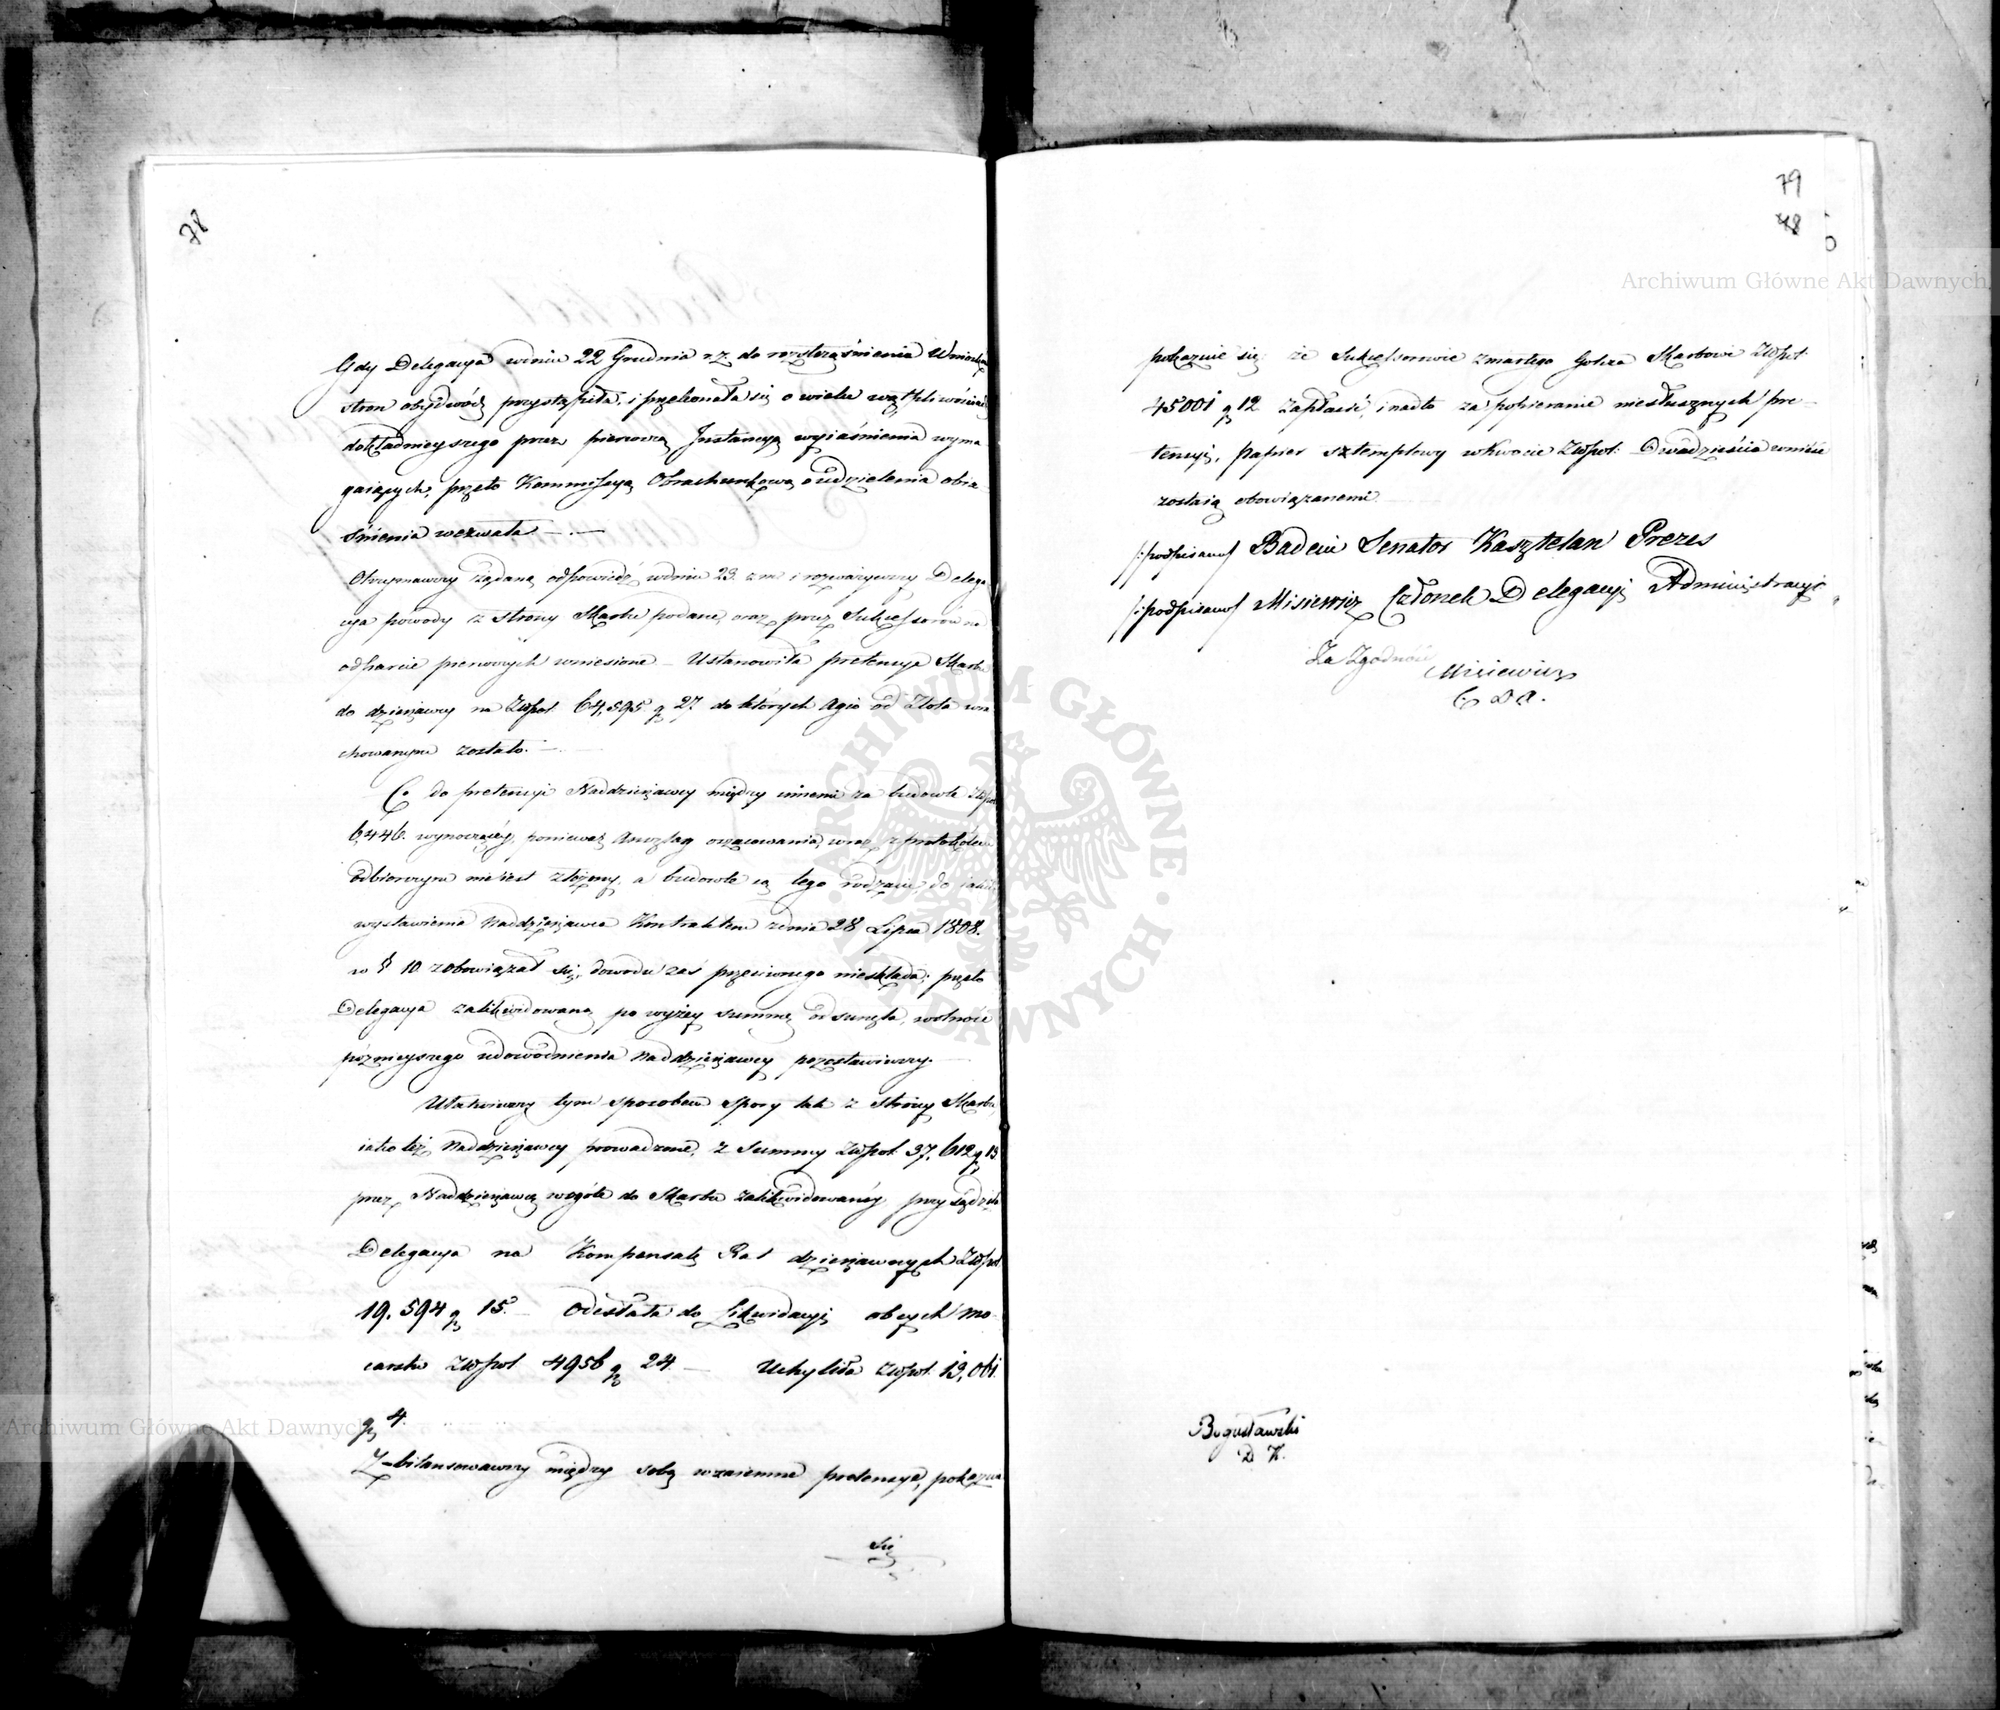 78
Gdy Delegacya w dniu 22 Grudnia r. z. do roztrząśnienia Wniosków
stron obydwóch przystąpiła, i przekonała się o wielu wątpliwościach
dokładnieyszego przez pierwszą Instancyą wyiaśnienia wyma
gaiących, przeto Kommissyą Obrachunkową o udzielenia obia
śnienia wezwała —.—
Otrzymawszy żądaną odpowiedź w dniu 23. z. m. i rozważywszy Delega
cya powody z strony Skarbu podane, oraz przez Sukcessorów na
odparcie pierwszych wniesione — Ustanowiła pretensye Skarbu
do dzierżawy na Złpol. 64,595 g 27. do których Agio od Złota wra
chowanym zostało. —.
Co do pretensyi Naddzierżawcy między innemi za budowle Złpol
6,446. wynoszącéy, ponieważ Anszlag oszacowania, wraz z protokółem
odbiorczym nie iest złożony, a budowle są tego rodzaiu, do iakich
wystawienia Naddzierżawca Kontraktem z dnia 28 Lipca 1808.
w § 10 zobowiązał się, dowodu zaś przeciwnego nieskłada; przeto
Delegacya zalikwidowaną powyżey summę odsunęła, wolność
późnieyszego udowodnienia Naddzierżawcy pozostawiwszy. —
Ułatwiwszy tym sposobem spory tak z strony Skarbu
iako też Naddzierżawcy prowadzone, z Summy Złpol. 37,612 g 13
przez Naddzierżawcę wogóle do Skarbu zalikwidowanéy przysądziła
Delegacya na Kompensatę Rat dzierżawnych Złpol
19,594 g 15. — Odesłała do Likwidacyi obcych mo
carstw Złpol 4956 g 24 — Uchyliła Złpol. 13,061.
g 4.
Z-bilansowawszy między sobą wzaiemne pretensye, pokazuie
się
79
48
pokazuie się że Sukcessorowie zmarłego Goltza Skarbowi Złpol.
45001 g 12 zapłacić, i nadto za popieranie niesłusznych pre-
tensyi, papier sztemplowy w kwocie Złpol: Dwadzieścia wnieść
zostaią obowiązanemi.
/:podpisano/ Badeni Senator Kasztelan Prezes
/:podpisano/ Misiewicz Członek Delegacyi Administracyi
Za Zgodność
Misiewicz
C D A.
Bogusławski
D. K.
Archiwum Główne Akt Dawnych
Archiwum Główne Akt Dawnych
ARCHIWUM GŁÓWNE • AKT DAWNYCH •